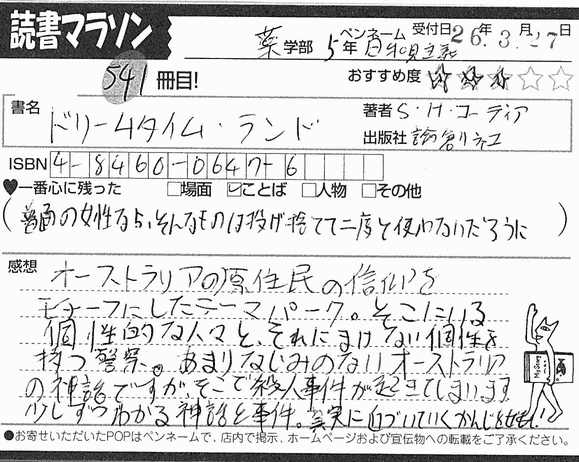 読書マラソン
薬学部 5年 ペンネーム 日和見主義 受付日 26年3月27日
541冊目!
おすすめ度 ★★★☆☆
書名 ドリームタイム・ランド
著者 S・H・コーティア
出版社 論創社
ISBN 4-8460-0647-6
♥一番心に残った □場面 ☑ことば □人物 □その他
(普通の女性なら、そんなものは投げ捨てて二度と使わないだろうに)
感想 オーストラリアの原住民の信仰を
モチーフにしたテーマパーク。そこにいる
個性的な人々と、それにまけない個性を
持つ警察。あまりなじみのないオーストラリア
の神話ですがそこで殺人事件が起きてしまいます
少しずつわかる神話と事件。真実に近づいていくかんじ
●お寄せいただいたPOPはペンネームで、店内で掲示、ホームページおよび宣伝物への転載をご了承ください。